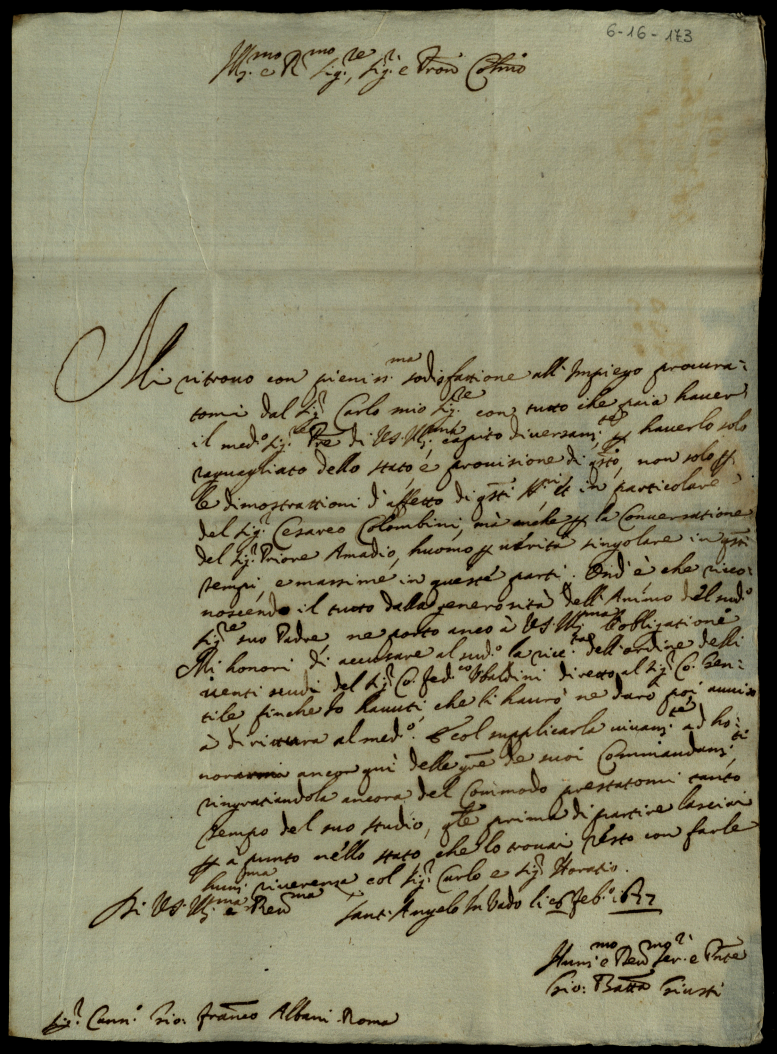 6-16-173
Ill.mo e R.mo Sig.re, Sig.r e Pron Col.mo
Mi ritrouo con pieniss.ma sodisfattione all'Impiego procura=
tomi dal Sig.r Carlo mio Sig.re con tutto che paia hauer
il med.o Sig.re Pre di VS Ill. capito diuersam.te p hauerlo solo
raguagliato dello stato, e prouisione di qsto, non solo p
le dimostrattioni d'affetto di qsti in particolare
del Sig.r Cesareo Colombini, mà anche p la Conuersatione
del Sig.r Priore Amadio, huomo p uerità singolare in qsti
tempi, e massime in queste parti. Ond'è che rico=
noscendo il tutto dalla generosità dell'Animo del sud.o
Sig.re suo Padre, ne porto anco à VS Ill.ma l'obligatione
Mi honori di accusare al sud.o la rice.ta dell'ordine delli
uenti scudi del Sig.r Co. Fed.co Ubaldini diretto al Sig.r Co. Gen=
tile finche lo hauuti, che li haurò ne darò poi auuiso
à dirittura al med.o. E col supplicarla uiuam.te ad ho=
norarmi ancor quì delle gre de suoi Commandam.ti
ringratiandola ancora del Commodo prestatomi tanto
tempo del suo studio, qle prima di partire lasciai
p à punto nello stato che lo trouai resto con farle
humi.ma riuerenza col Sig.r Carlo e Sig.r Horatio.
Di VS Ill.ma e Reu.ma Sant'Angelo In Vado li 6 Feb.o 1677
Humi.mo e Reu.mo Ser.r e Pnte
Gio: Batta Giusti
Sig.r Cann.o Gio: Franco Albani Roma